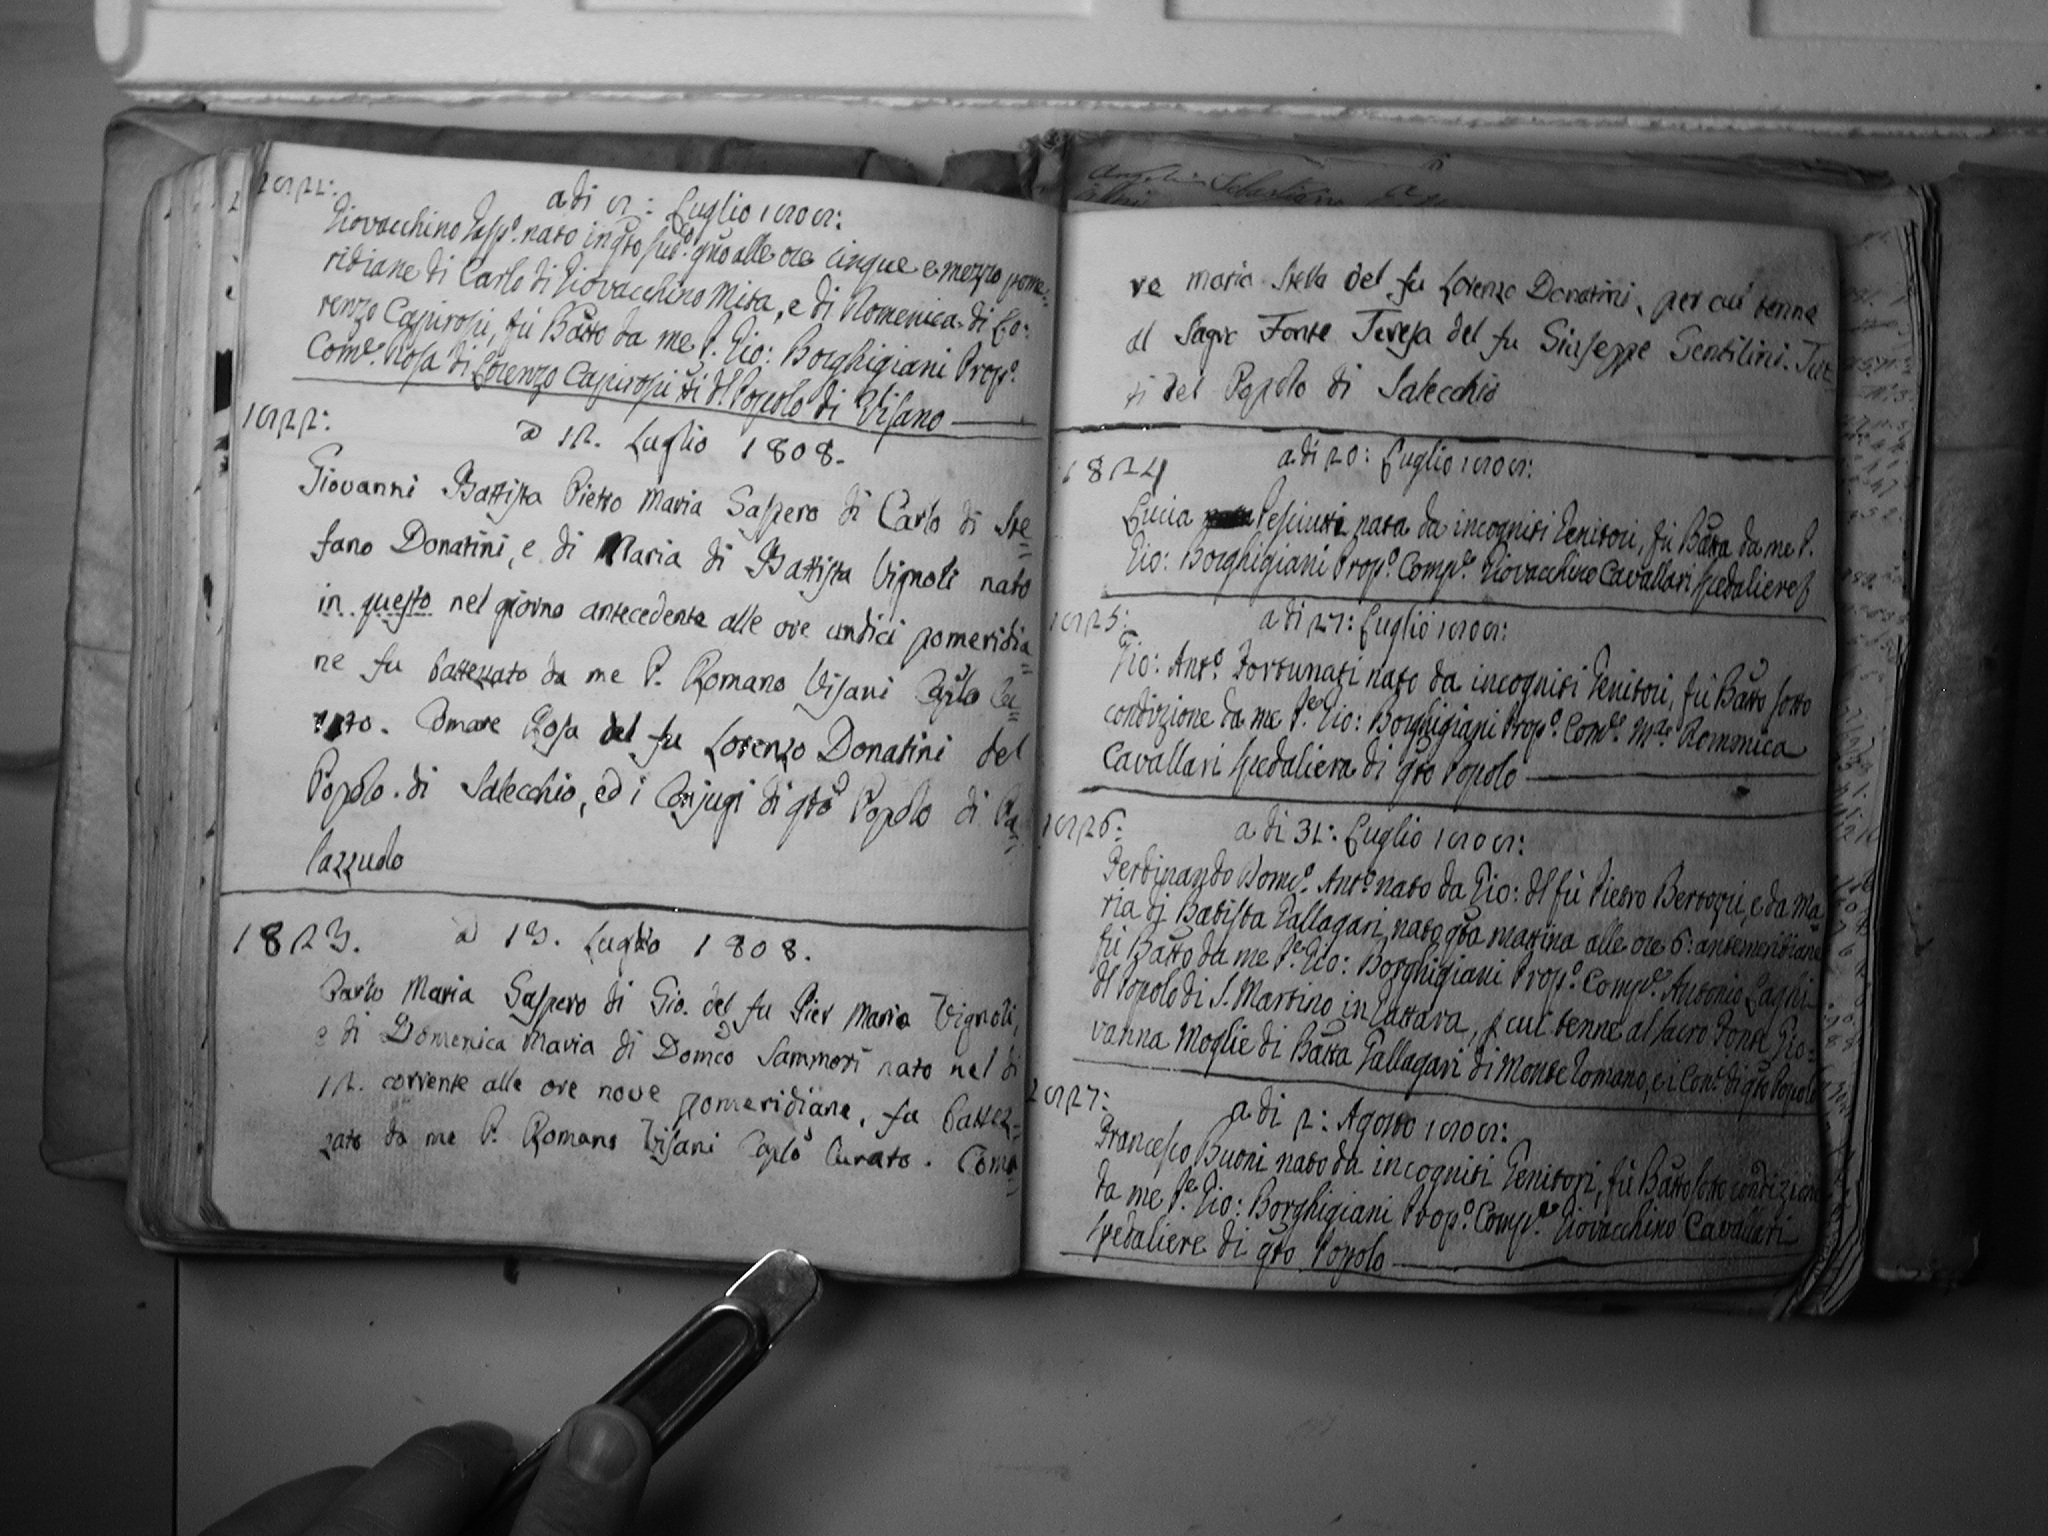 1821:
adi 8: Luglio 1808:
Giovacchino Gasp.o nato in qto sud.o gno alle ore cinque e mezzo pome=
ridiane di Carlo di Giovacchino Mita, e di Domenica di Lo:
renzo Capirosi, fù Batto da me P. Gio: Borghigiani Prop.o
Com.e Rosa di Lorenzo Capirosi tti dl Popolo di Visano
1822:
a 12. Luglio 1808.
Giovanni Battista Pietro Maria Gaspero di Carlo di Ste=
fano Donatini, e di Maria di Battista Vignoli nato
in questo nel giorno antecedente alle ore undici pomeridia=
ne fu battezzato da me P. Romano Visani Caplo Cu=
rato. Comare Rosa del fu Lorenzo Donatini del
Popolo di Salecchio, ed i Conjugi di qto Popolo di Pa=
lazzuolo
1823. a 13. Luglio 1808.
Carlo Maria Gaspero di Gio. del fu Pier Maria Vignoli,
e di Domenica Maria di Domco Sammori nato nel di
12. corrente alle ore nove pomeridiane, fu battez=
zato da me P. Romano Visani Caplo Curato. Coma=
re Maria Stella del fu Lorenzo Donatini, per cui tenne
al Sagro Fonte Teresa del fu Giuseppe Gentilini. Tut=
ti del Popolo di Salecchio
1824 adi 20: Luglio 1808:
Lucia Pesciutti nata da incogniti Genitori, fù Batta da me P.
Gio: Borghigiani Prop.o Comp.e Giovacchino Cavallari Spedaliere
1825: adi 27: Luglio 1808:
Gio: Ant.o Fortunati nato da incogniti Genitori, fù Batto sotto
condizione da me P.e Gio: Borghigiani Prop.o Com.e M.a Domenica
Cavallari Spedaliera di qto Popolo
1826: a di 31: Luglio 1808:
Ferdinando Dom.o Ant.o nato da Gio: dl fù Pietro Bertozzi, e da Ma
ria di Batista Gallagari, nato qta mattina alle ore 6: antemeridiane
fù Batto da me P.e Gio: Borghigiani Prop.o Comp.e Antonio Laghi
dl Popolo di S. Martino in Gattara, p cui tenne al sacro Fonte Gio=
vanna Moglie di Batta Gallagari di Monte Romano, e i Con. di qto Popolo
1827: a di 2: Agosto 1808:
Francesco Buoni nato da incogniti Genitori, fù Batto sotto condizione
da me P.e Gio: Borghigiani Prop.o Comp.e Giovacchino Cavallari
Spedaliere di qto Popolo